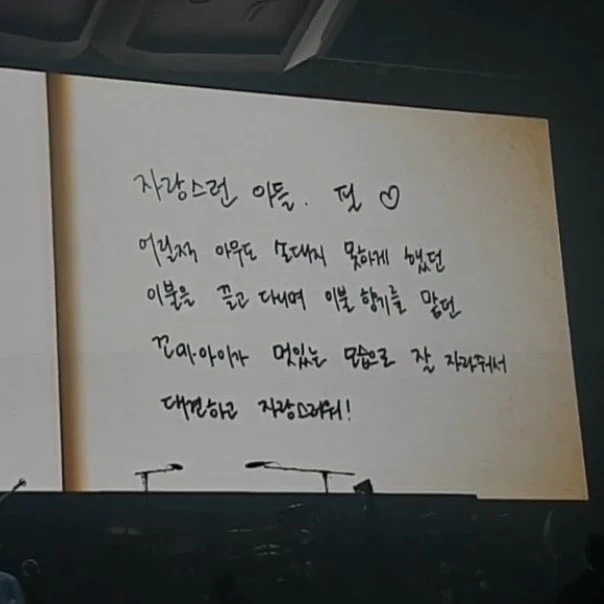 자랑스런 아들. 필 ♡
어릴적 아무도 손대지 못하게 했던
이불을 끌고 다니며 이불 향기를 맡던
꼬마아이가 멋있는 모습으로 잘 자라줘서
대견하고 자랑스러워!